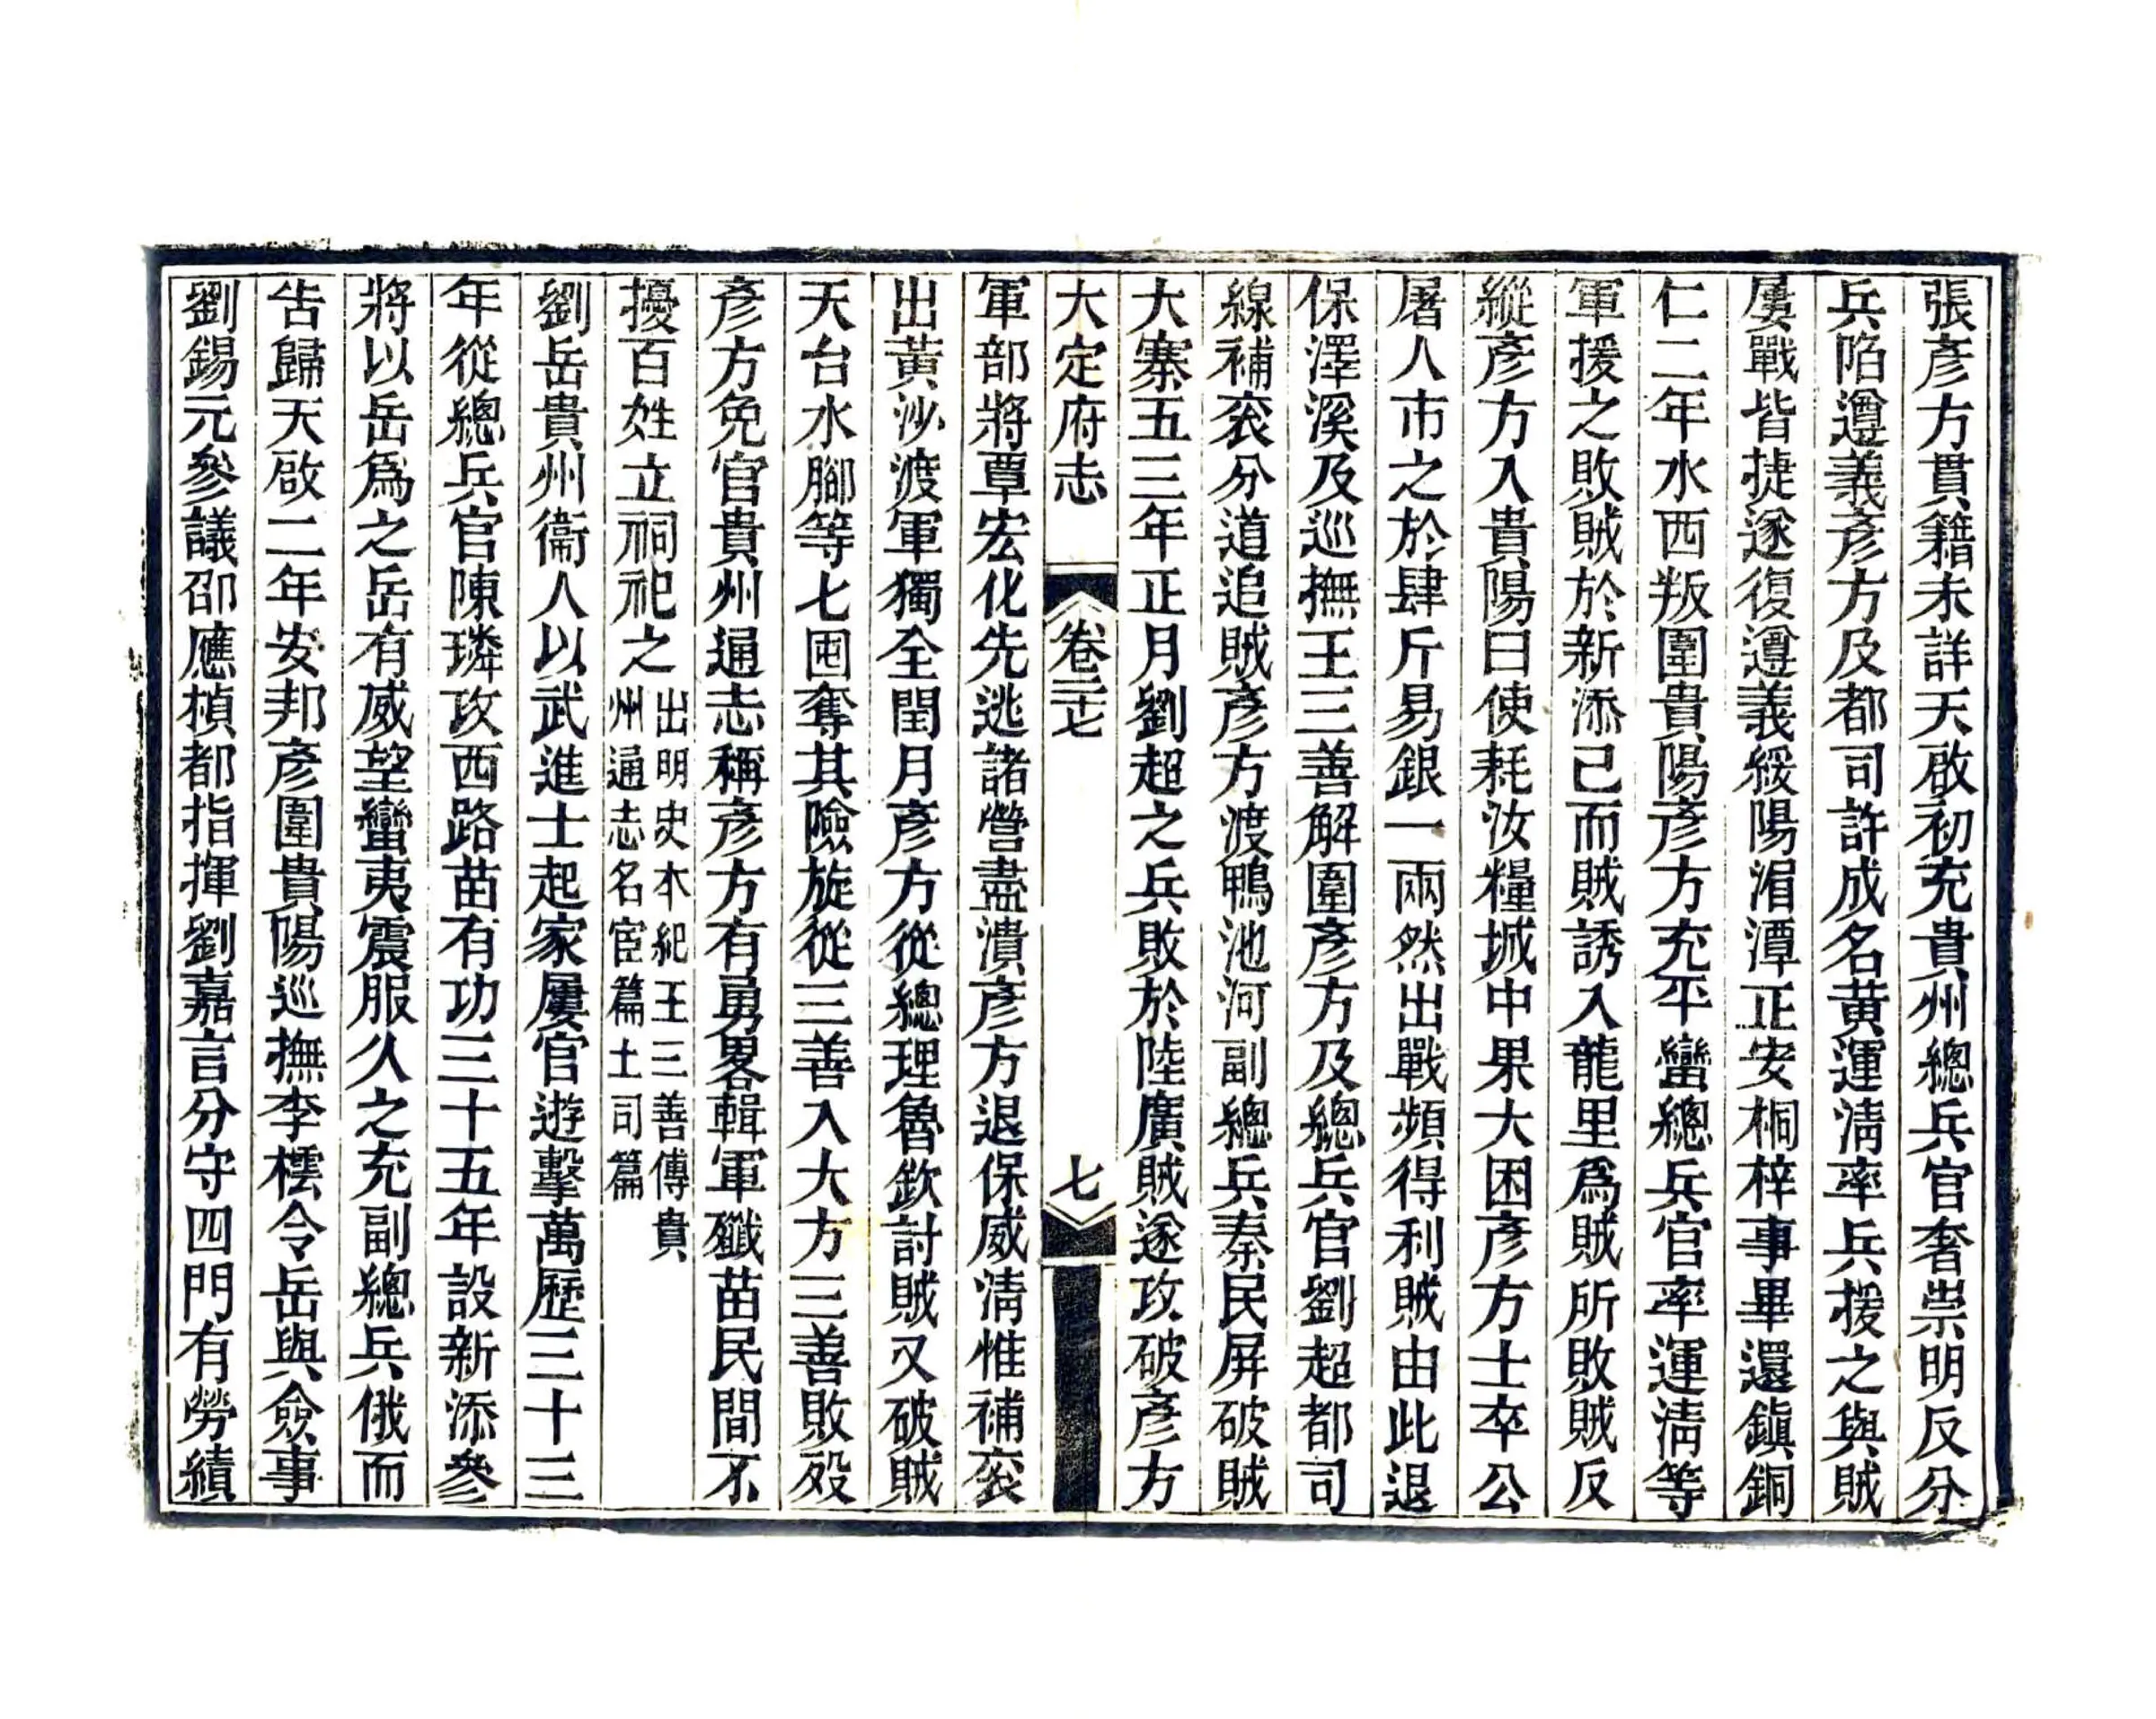 張彥方貫籍未詳天啟初充貴州總兵官奢崇明反分
兵陷遵義彥方及都司許成名黃運清率兵援之與賊
屢戰皆捷遂復遵義綏陽湄潭正安桐梓事畢還鎮銅
仁二年水西叛圍貴陽彥方充平蠻總兵官率運清等
軍援之敗賊於新添已而賊誘入龍里爲賊所敗賊反
縱彥方入貴陽曰使耗汝糧城中果大困彥方士卒公
屠人市之於肆斤易銀一兩然出戰頻得利賊由此退
保澤溪及巡撫王三善解圍彥方及總兵官劉超都司
線補衮分道追賊彥方渡鴨池河副總兵秦民屏破賊
大寨五三年正月劉超之兵敗於陸廣賊遂攻破彥方
大定府志 卷二七 七
軍部將覃宏化先逃諸營盡潰彥方退保威清惟補衮
出黃沙渡軍獨全閏月彥方從總理魯欽討賊又破賊
天台水腳等七囤奪其險旋從三善入大方三善敗歿
彥方免官貴州通志稱彥方有勇畧輯軍殲苗民間不
擾百姓立祠祀之出明史本紀王三善傳貴
州通志名宦篇土司篇
劉岳貴州衞人以武進士起家屢官遊擊萬歷三十三
年從總兵官陳璘攻西路苗有功三十五年設新添參
將以岳爲之岳有威望蠻夷震服久之充副總兵俄而
告歸天啟二年安邦彥圍貴陽巡撫李橒令岳與僉事
劉錫元參議邵應楨都指揮劉嘉言分守四門有勞績